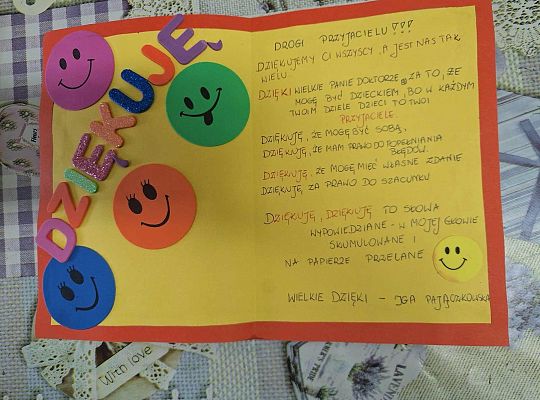 DZIĘKUJĘ
DROGI PRZYJACIELU!!!
DZIĘKUJEMY CI WSZYSCY, A JEST NAS TAK
WIELU.
DZIĘKI WIELKIE PANIE DOKTORZE, ZA TO, ŻE
MOGĘ BYĆ DZIECKIEM, BO W KAŻDYM
TWOIM DZIELE DZIECI TO TWOI
PRZYJACIELE.
DZIĘKUJĘ, ŻE MOGĘ BYĆ SOBĄ,
DZIĘKUJĘ, ŻE MAM PRAWO DO POPEŁNIANIA
BŁĘDÓW.
DZIĘKUJĘ, ŻE MOGĘ MIEĆ WŁASNE ZDANIE
DZIĘKUJĘ ZA PRAWO DO SZACUNKU
DZIĘKUJĘ, DZIĘKUJĘ TO SŁOWA
WYPOWIEDZIANE - W MOJEJ GŁOWIE
SKUMULOWANE I
NA PAPIERZE PRZELANE
WIELKIE DZIĘKI - IGA PAJĄCZKOWSKA
With love